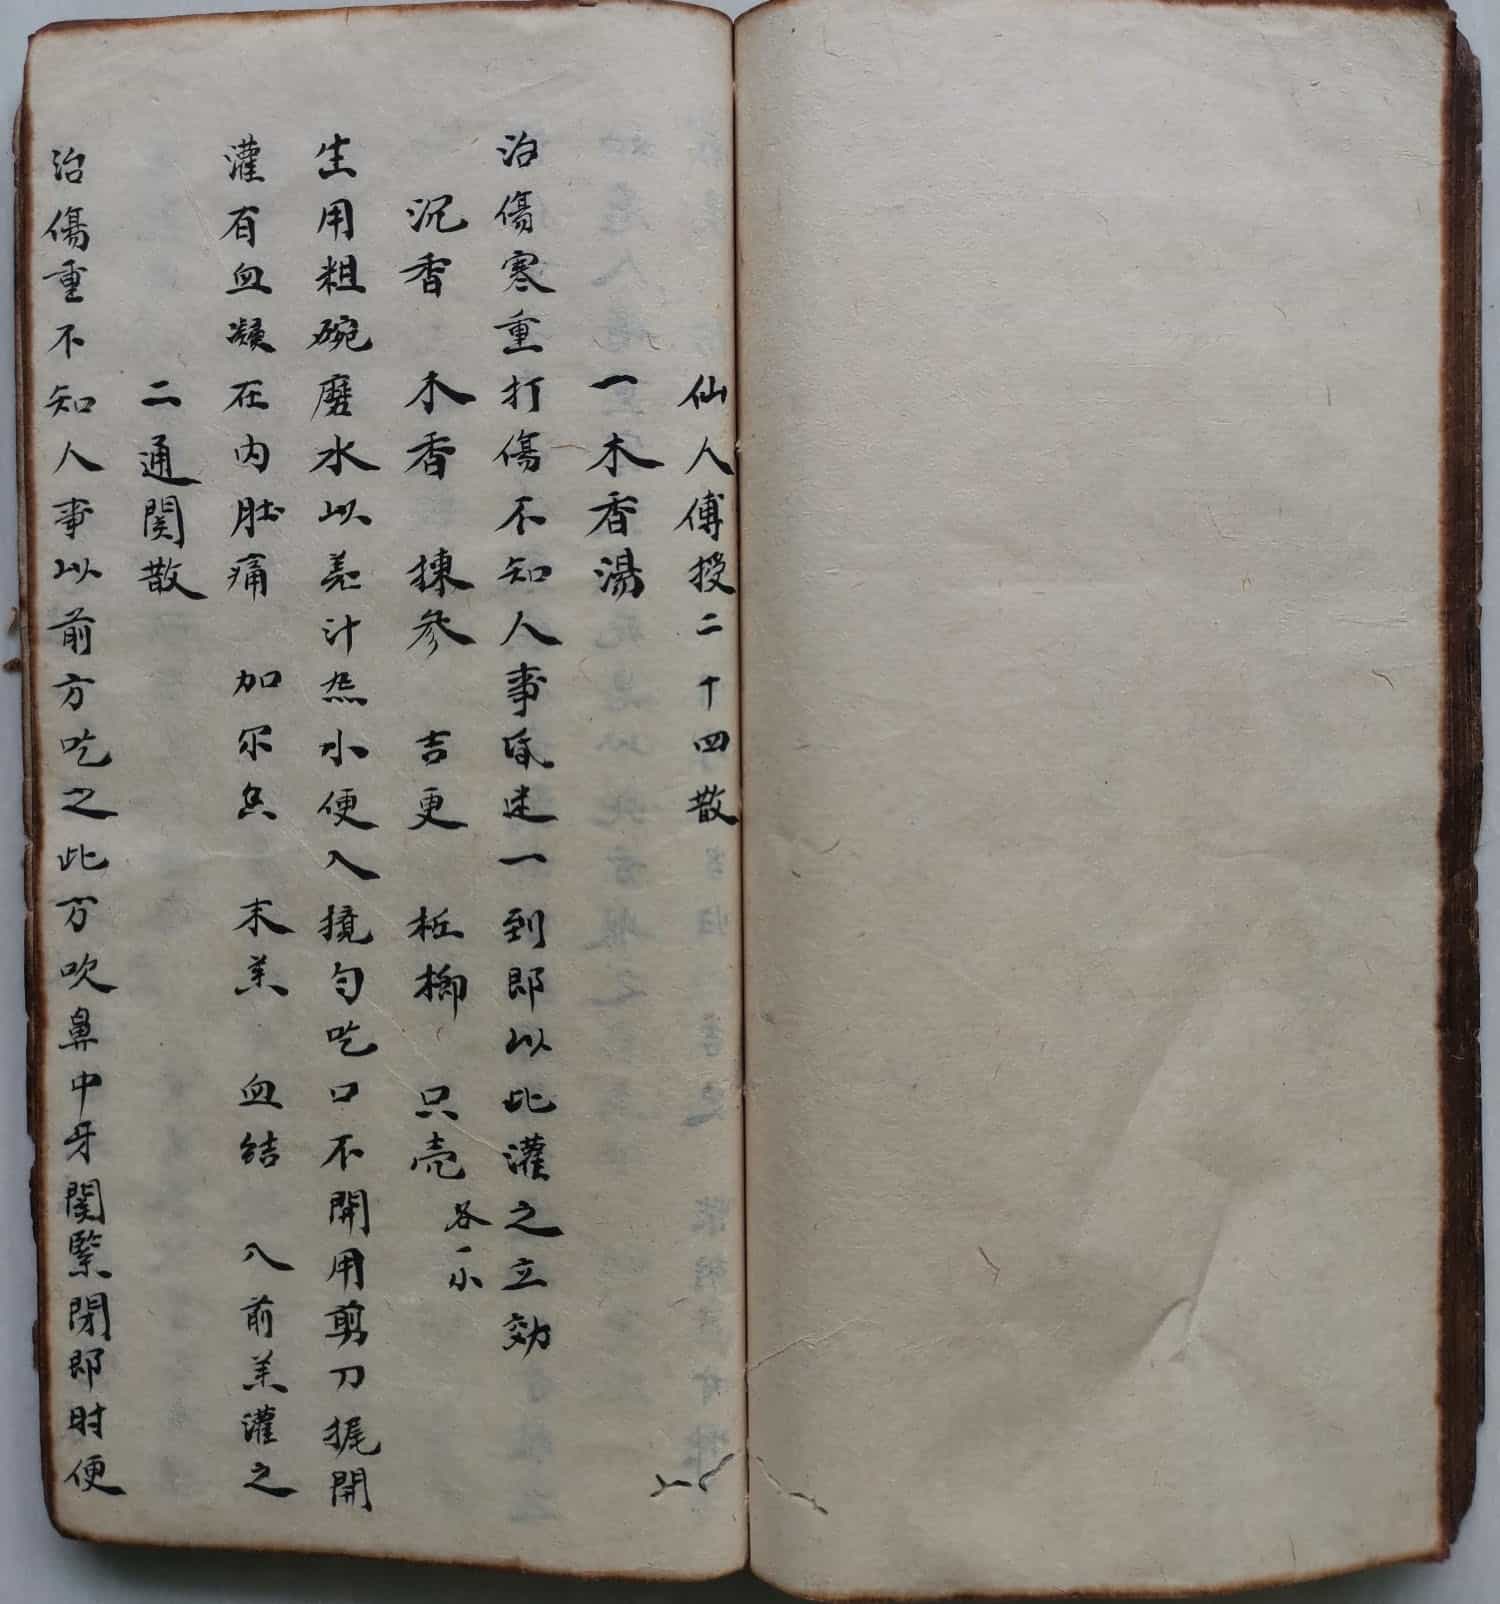 仙人傅授二十四散
一木香湯
治傷寒重打傷不知人事昏迷一到即以此灌之立効
沉香 木香 揀參 吉更 栕榔 只壳 各一
生用粗碗磨水以羌汁炁小便入撓勻吃口不開用剪刀捤開
灌有血凝在內肚痛 加尔 末羔 血結 入前羔灌之
二通関散
治傷重不知人事以前方吃之此方吹鼻中牙関緊閉即时便